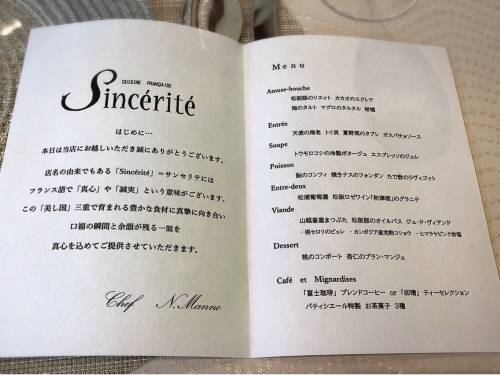 CUISINE FRANÇAISE
Sincérité
はじめに…
本日は当店にお越しいただき誠にありがとうございます。
店名の由来でもある「Sincérité」＝サンセリテには
フランス語で「真心」や「誠実」という意味がございます。
この「美し国」三重で育まれる豊かな食材に真摯に向き合い
口福の瞬間と余韻が残る一皿を
真心を込めてご提供させていただきます。
Chef N.Manno
Menu
Amuse-bouche
松阪豚のリエット カカオのエクレア
海のタルト マグロのタルタル 柑橘
Entrée
天使の海老 トリ貝 夏野菜のタブレ ガスパチョソース
Soupe
トウモロコシの冷製ポタージュ エスプレッソのジュレ
Poisson
鮎のコンフィ 焼きナスのフォンダン たで酢のラヴィゴット
Entre-deux
松浦葡萄園 松阪ロゼワイン「秋輝姫」のグラニテ
Viande
山越畜産まつぶた 松阪豚のオイルバス ジュ・ド・ヴィアンド
・根セロリのピュレ ・カンボジア産完熟コショウ ・ヒマラヤピンク岩塩
Dessert
桃のコンポート 杏仁のブラン・マンジェ
Café et Mignardises
「富士珈琲」 ブレンドコーヒー or ティーセレクション
パティシエール特製 お茶菓子 3種